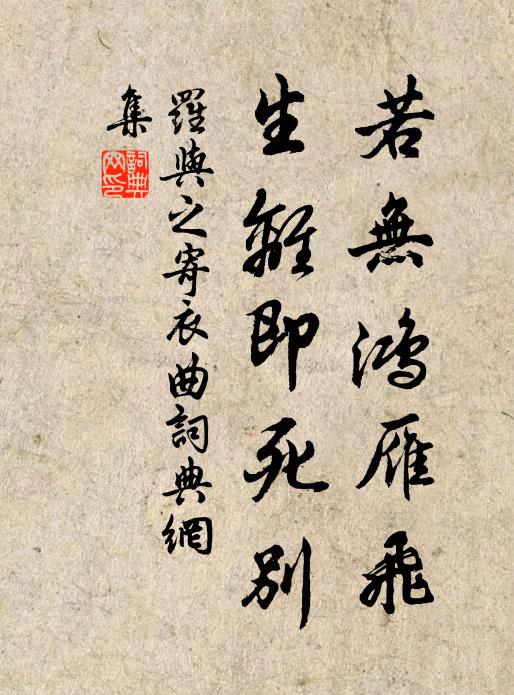 若無鴻雁飛
生離即死別
羅與之寄衣曲詞典網
集
詞典網印